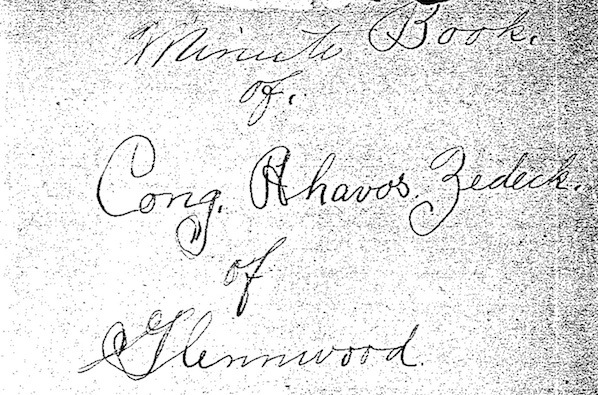 Minute Book.
of.
Cong. Ahavos. Zedeck.
of
Glennwood.